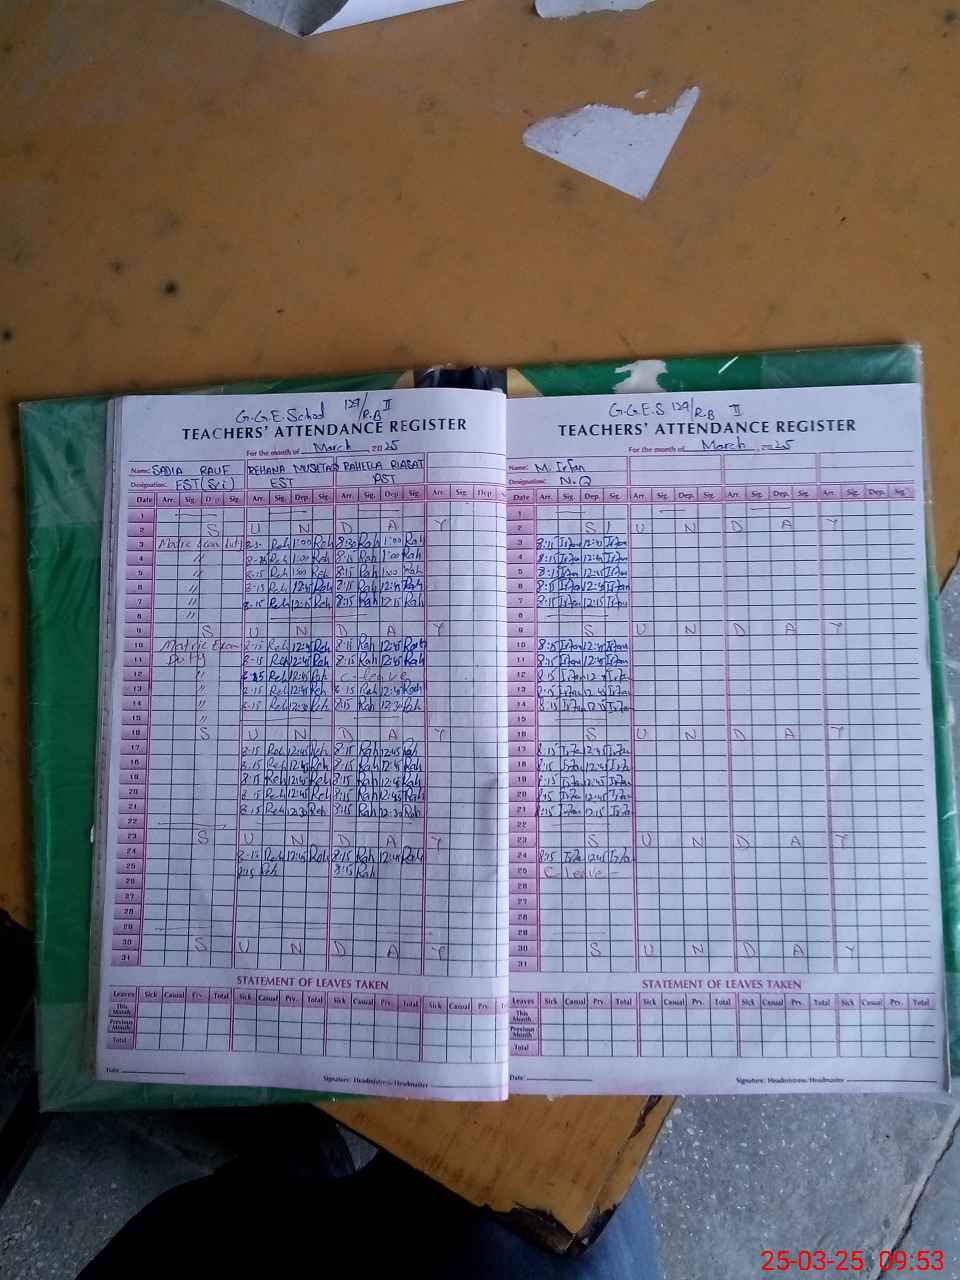 G.G.E.School 129/R.B II
TEACHERS' ATTENDANCE REGISTER
For the month of March, 2025
Name: SADIA RAUF REHANA MUSHTAQ RAHEELA RIASAT
Designation: EST(Sci) EST
Date Arr. Sig. Dep. Sig. Arr. Sig. Dep. Sig. Arr. Sig. Dep. Sig. Arr. Sig. Dep.
1
2 S U N D A Y
3 Matric Exam Duty Reh 1:00 Reh 8:30 Rah 1:00 Rah
4 〃 Reh 1:00 Reh 8:15 Rah 1:00 Rah
5 〃 8:15 Reh 1:00 Reh 8:15 Rah 1:00 Rah
6 〃 8:15 Reh 12:45 Reh 8:15 Rah 12:45 Rah
7 〃 8:15 Reh 12:15 Reh 8:15 Rah 12:15 Rah
8 〃
9 S U N D A Y
10 Matric Exam 8:15 Reh 12:45 Reh 8:15 Rah 12:45 Rah
11 Duty 8:15 Reh 12:45 Reh 8:15 Rah 12:45 Rah
12 〃 8:15 Reh 12:45 Reh C-Leave
13 〃 8:15 Reh 12:45 Reh 8:15 Rah 12:45 Rah
14 〃 8:15 Reh 12:30 Reh 8:15 Rah 12:30 Rah
15 〃
16 S U N D A Y
17 8:15 Reh 12:45 Reh 8:15 Rah 12:45 Rah
18 8:15 Reh 12:45 Reh 8:15 Rah 12:45 Rah
19 8:15 Reh 12:45 Reh 8:15 Rah 12:45 Rah
20 8:15 Reh 12:45 Reh 8:15 Rah 12:45 Rah
21 8:15 Reh 12:30 Reh 8:15 Rah 12:30 Rah
22
23 S U N D A Y
24 8:15 Reh 12:45 Reh 8:15 Rah 12:45 Rah
25 8:15 Reh 8:15 Rah
26
27
28
29
30 S U N D A Y
31
STATEMENT OF LEAVES TAKEN
Leaves Sick Casual Prv. Total Sick Casual Prv. Total Sick Casual Prv. Total Sick Casual Prv.
This Month
Previous Month
Total
Date:
Signature: Headmistress/Headmaster
G.G.E.S 129/R.B II
TEACHERS' ATTENDANCE REGISTER
For the month of March, 2025
Name: M. Irfan
Designation: N.Q
Date Arr. Sig. Dep. Sig. Arr. Sig. Dep. Sig. Arr. Sig. Dep. Sig. Arr. Sig. Dep. Sig.
1
2 S U N D A Y
3 8:15 Irfan 12:45 Irfan
4 8:15 Irfan 12:45 Irfan
5 8:15 Irfan 12:45 Irfan
6 8:15 Irfan 12:45 Irfan
7 8:15 Irfan 12:15 Irfan
8
9 S U N D A Y
10 8:15 Irfan 12:45 Irfan
11 8:15 Irfan 12:45 Irfan
12 8:15 Irfan Irfan
13 8:15 Irfan 12:45 Irfan
14 8:15 Irfan Irfan
15
16 S U N D A Y
17 8:15 Irfan 12:45 Irfan
18 8:15 Irfan 12:45 Irfan
19 8:15 Irfan 12:45 Irfan
20 8:15 Irfan 12:45 Irfan
21 8:15 Irfan 12:15 Irfan
22
23 S U N D A Y
24 8:15 Irfan 12:45 Irfan
25 C-Leave
26
27
28
29
30 S U N D A Y
31
STATEMENT OF LEAVES TAKEN
Leaves Sick Casual Prv. Total Sick Casual Prv. Total Sick Casual Prv. Total Sick Casual Prv. Total
This Month
Previous Month
Total
Date:
Signature: Headmistress/Headmaster
25-03-25 09:53